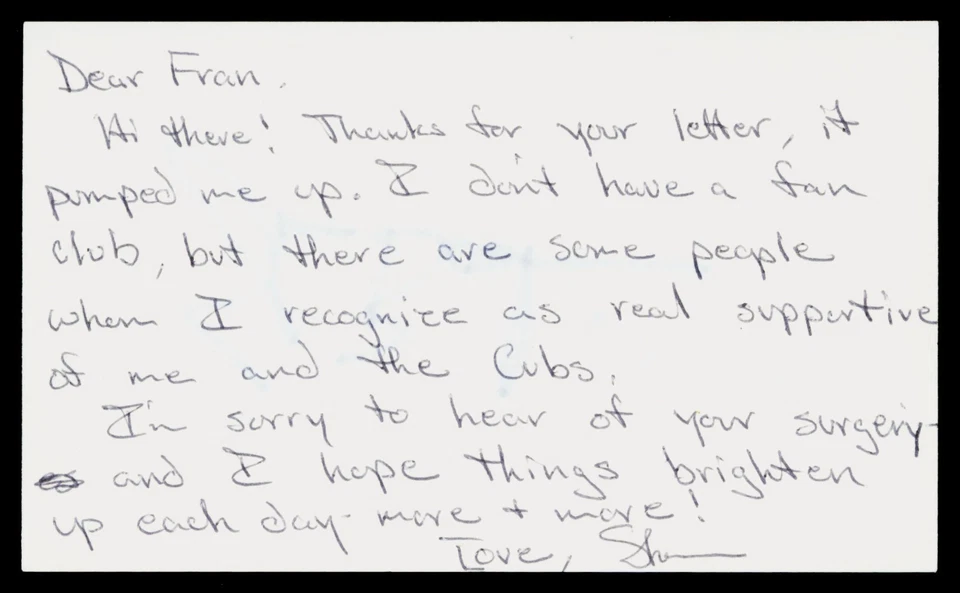 Dear Fran.
Hi there! Thanks for your letter, it
pumped me up. I don't have a fan
club, but there are some people
whom I recognize as real supportive
of me and the Cubs.
I'm sorry to hear of your surgery-
and I hope things brighten
up each day- more + more!
Love,